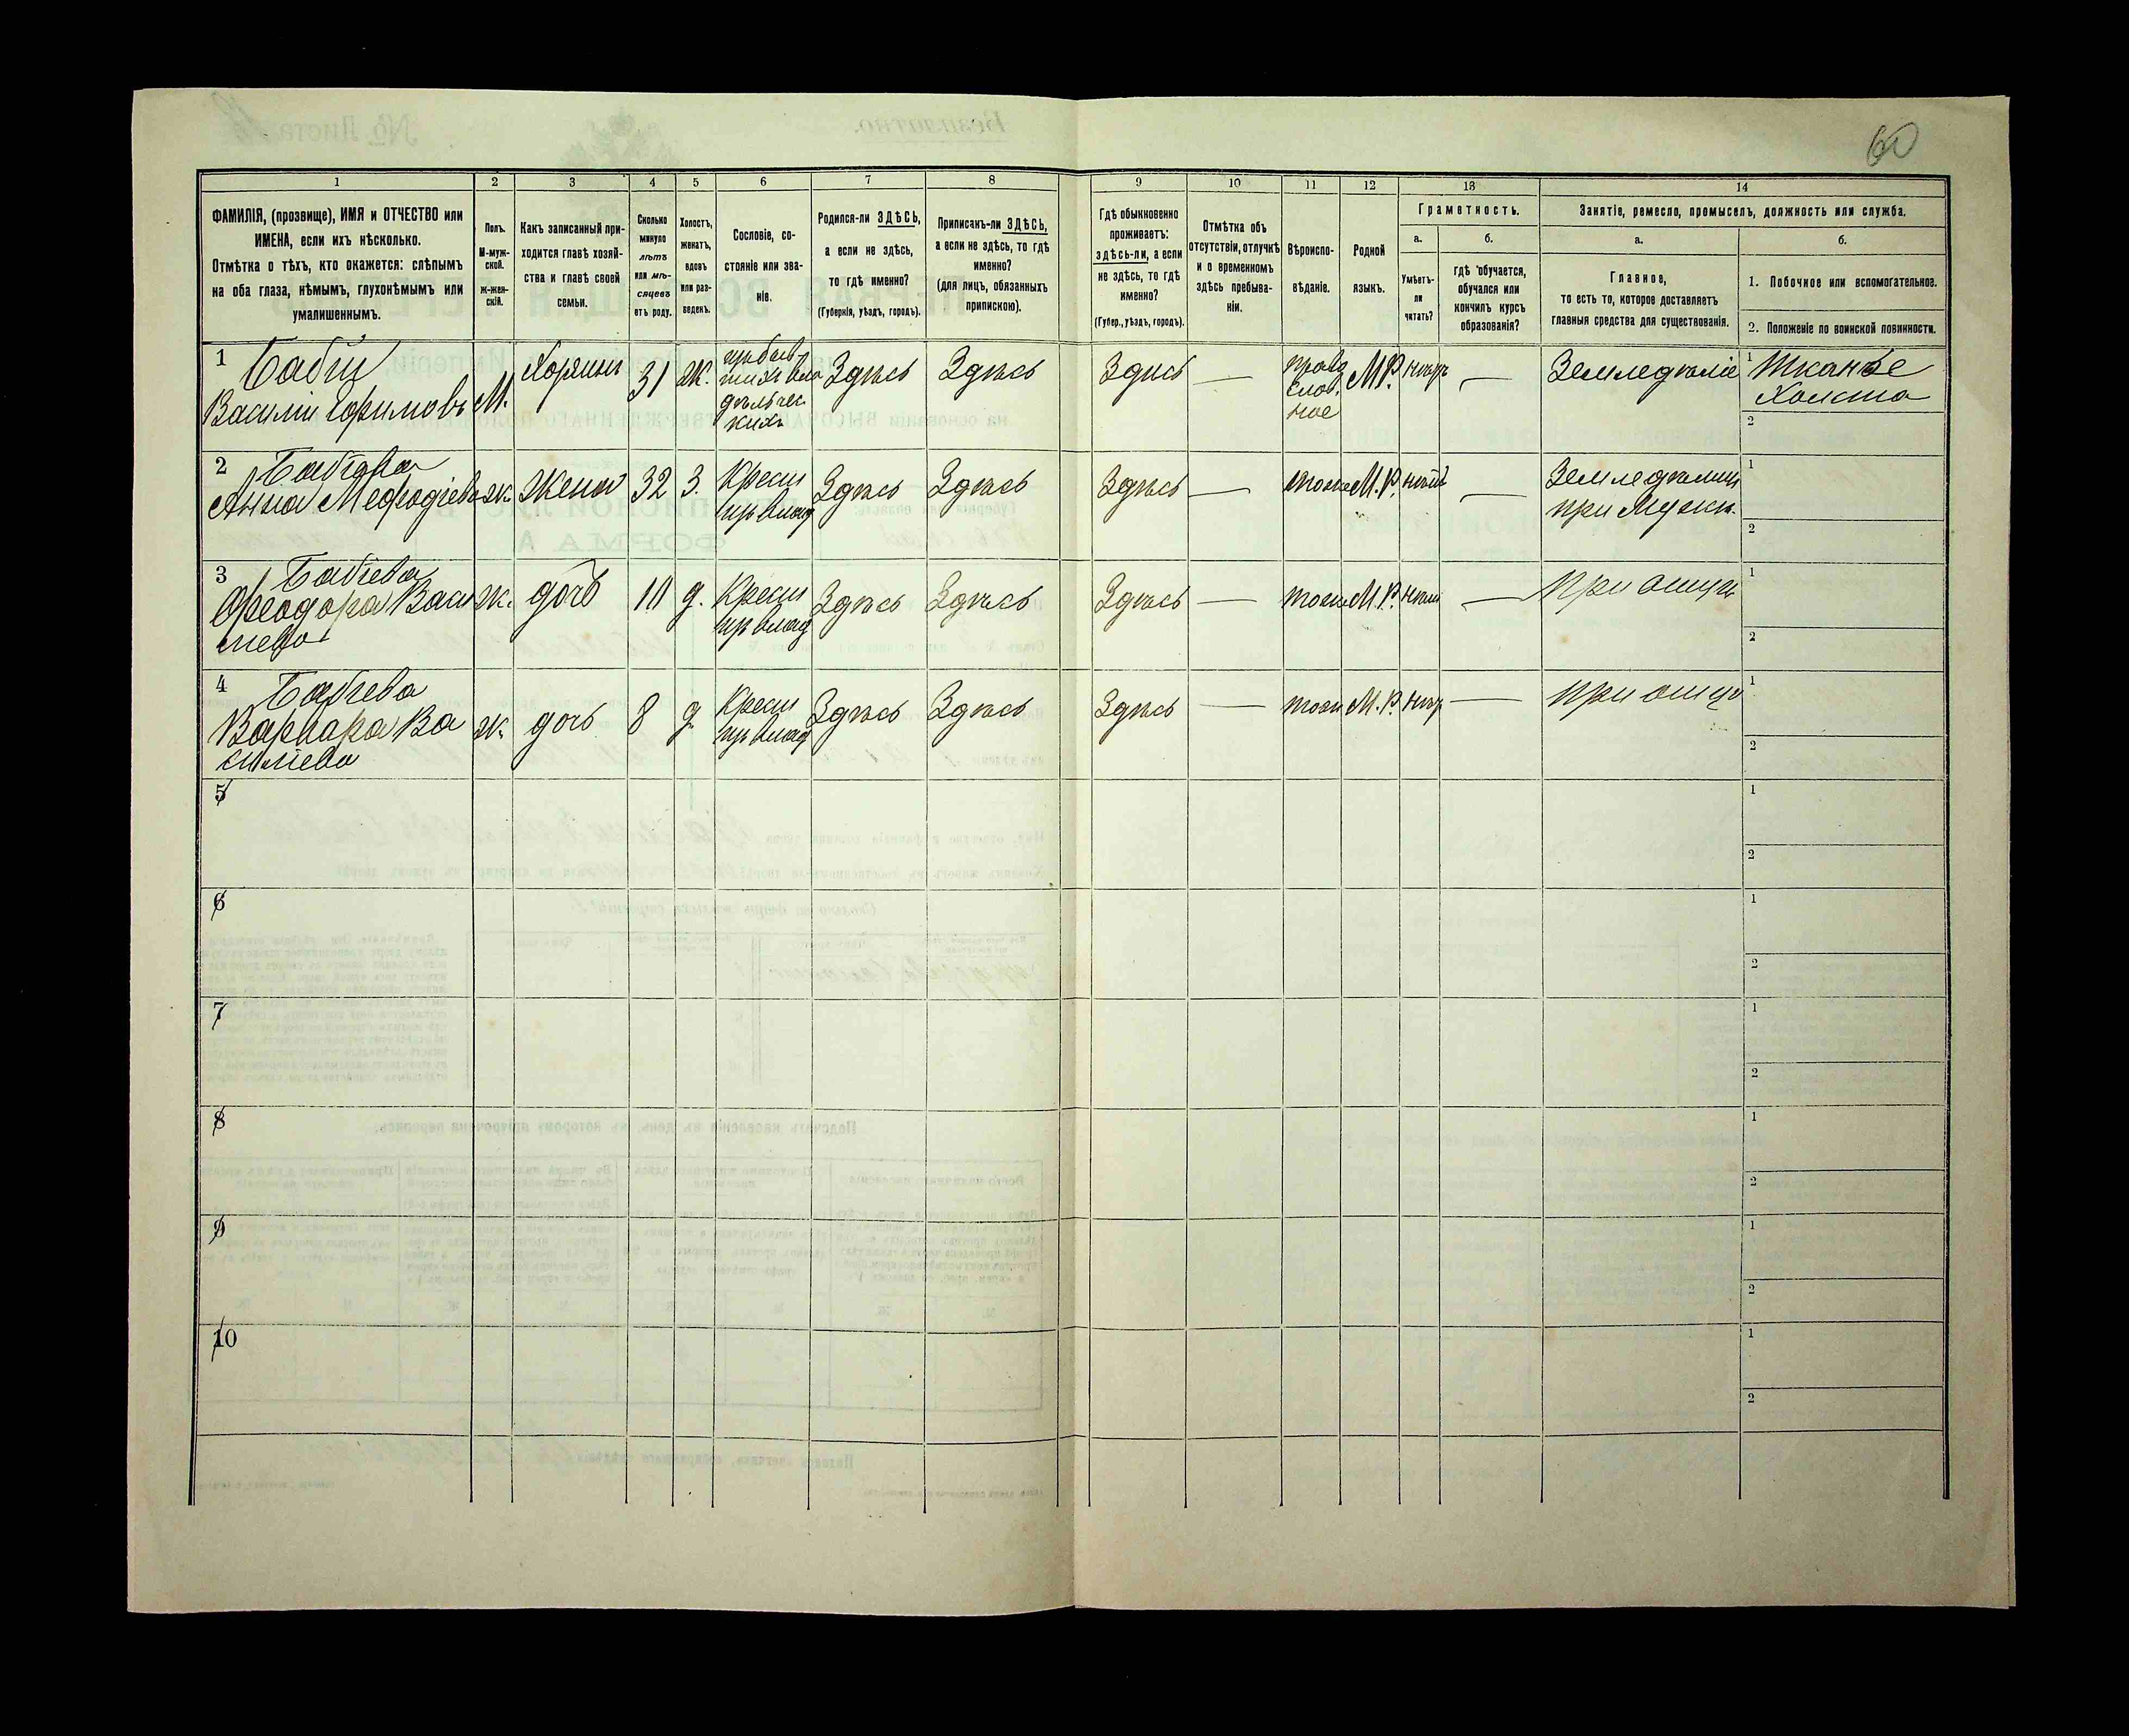 60
1 2 3 4 5 6 7 8 9 10 11 12 13 14
ФАМИЛІЯ, (прозвище), ИМЯ и ОТЧЕСТВО или
ИМЕНА, если ихъ нѣсколько.
Отмѣтка о тѣхъ, кто окажется: слѣпымъ
на оба глаза, нѣмымъ, глухонѣмымъ или
умалишеннымъ.
Полъ.
М-муж-
ской.
Ж-жен-
скій.
Какъ записанный при-
ходится главѣ хозяй-
ства и главѣ своей
семьи.
Сколько
минуло
лѣтъ
или мѣ-
сяцевъ
отъ роду.
Холостъ,
женатъ,
вдовъ
или раз-
веденъ.
Сословіе, со-
стояніе или зва-
ніе.
Родился-ли ЗДѢСЬ,
а если не здѣсь,
то гдѣ именно?
(Губернія, уѣздъ, городъ).
Приписанъ-ли ЗДѢСЬ,
а если не здѣсь, то гдѣ
именно?
(для лицъ, обязанныхъ
припискою).
Гдѣ обыкновенно
проживаетъ:
здѣсь-ли, а если
не здѣсь, то гдѣ
именно?
(Губер., уѣздъ, городъ).
Отмѣтка объ
отсутствіи, отлучкѣ
и о временномъ
здѣсь пребыва-
ніи.
Вѣроиспо-
вѣданіе.
Родной
языкъ.
Грамотность.
а.
Умѣетъ-
ли
читать?
б.
гдѣ обучается,
обучался или
кончилъ курсъ
образованія?
Занятіе, ремесло, промыселъ, должность или служба.
а.
Главное,
то есть то, которое доставляетъ
главныя средства для существованія.
б.
1. Побочное или вспомогательное.
2. Положеніе по воинской повинности.
1 Бабій
Василій М. Хозяинъ 31 Ж. Здѣсь Здѣсь Здѣсь — М.Р. — Земледѣліе 1 Тканье
Холста
право
слав.
ное
2
2 Бабіева
Анна Мефодіева ж. жена 32 З. Крест Здѣсь Здѣсь Здѣсь — тоже М.Р. нѣтъ — 1
при Мужѣ
2
3 Бабіева
Феодора Васи ж. дочь д. Крест Здѣсь Здѣсь Здѣсь — тоже М.Р. нѣтъ — При отцѣ 1
лieва
2
4 Бабіева
Варвара Ва ж. дочь 8 д. Крест Здѣсь Здѣсь Здѣсь — тоже М.Р. — при отцѣ 1
силіева
2
5 1
2
6 1
2
7 1
2
8 1
2
9 1
2
10 1
2